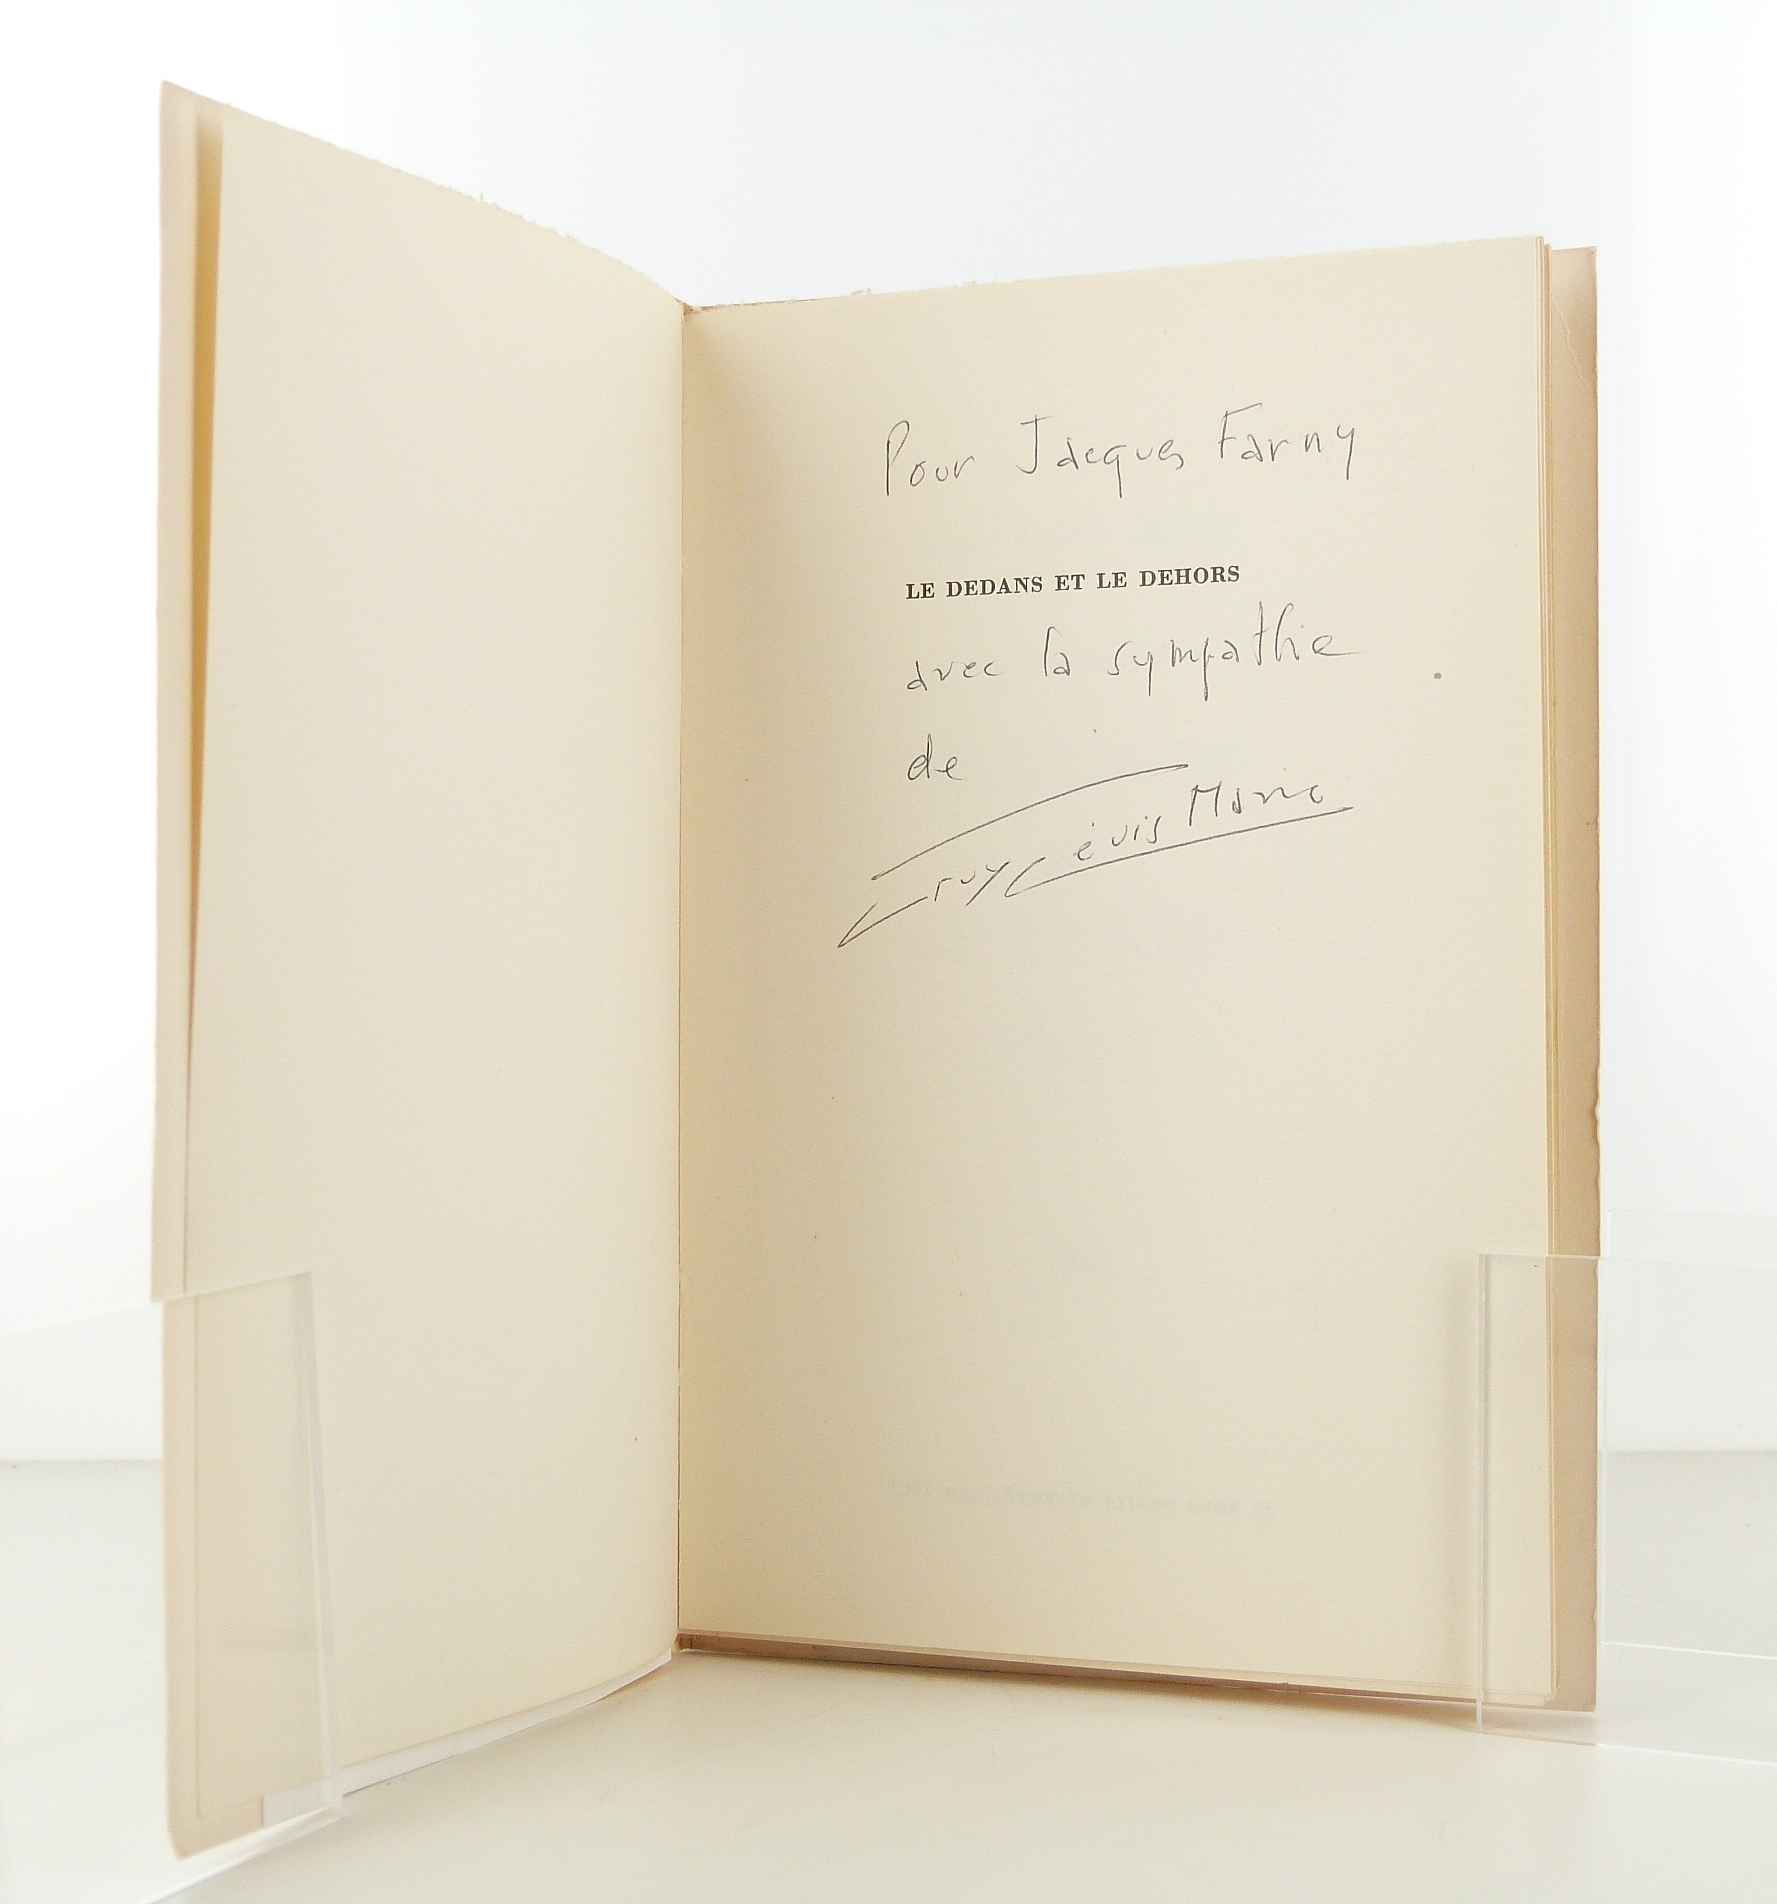 Pour Jacques Farny
LE DEDANS ET LE DEHORS
avec la sympathie
de
Guy Lévis Mano